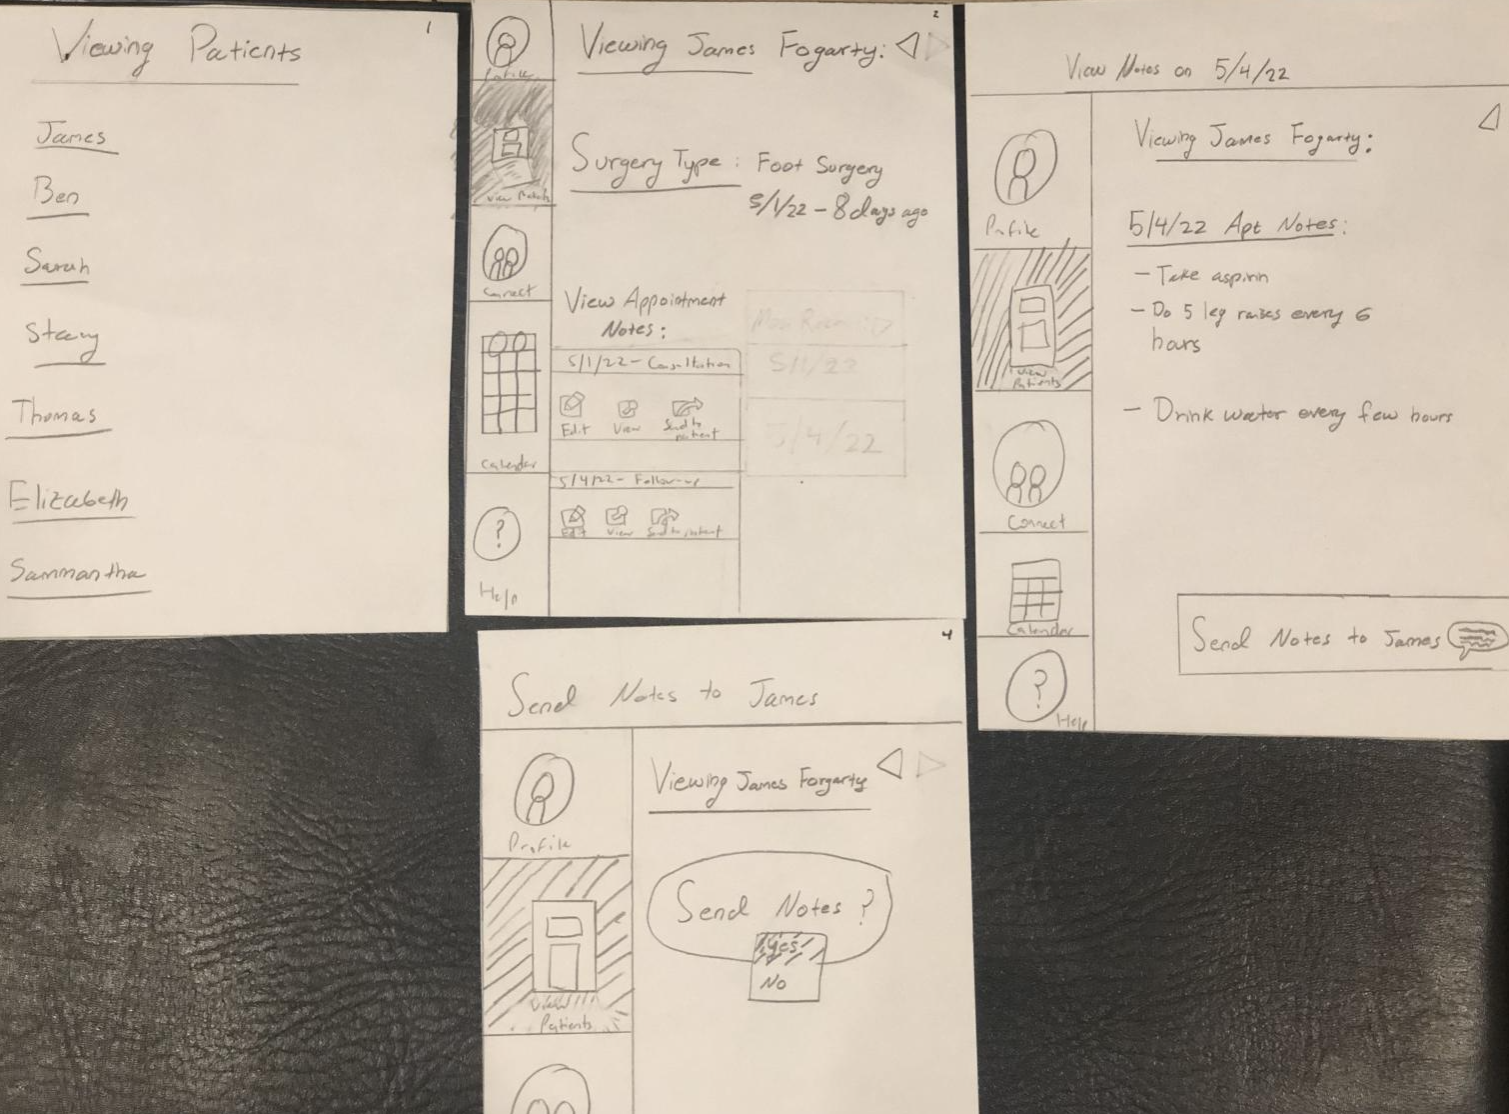 1
Viewing Patients
James
Ben
Sarah
Stacy
Thomas
Elizabeth
Sammantha
2
Viewing James Fogarty:
Profile
View Patients
Connect
Calendar
?
Help
Surgery Type: Foot Surgery
5/1/22 - 8 days ago
View Appointment
Notes:
5/1/22 - Consultation
Edit View Send to
patient
5/4/22 - Follow-up
Edit View Send to patient
5/1/22
5/4/22
View Notes on 5/4/22
Profile
View
Patients
Connect
Calendar
?
Help
Viewing James Fogarty:
5/4/22 Apt Notes:
- Take aspirin
- Do 5 leg raises every 6
hours
- Drink water every few hours
Send Notes to James
4
Send Notes to James
Profile
View
Patients
Viewing James Forgarty
Send Notes?
Yes
No